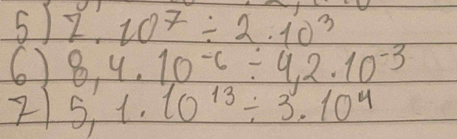 5) 7.10⁷ ÷ 2.10³
6) 8,4.10⁻⁶ ÷ 4,2.10⁻³
7) 5,1.10¹³ ÷ 3.10⁴